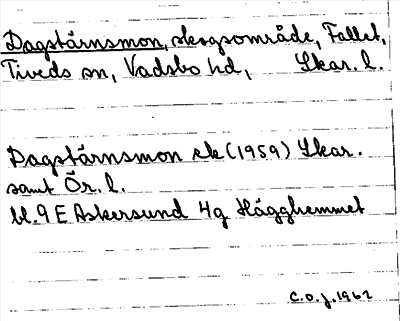 Dagstärnsmon, skogsområde, Fallet,
Tiveds sn, Vadsbo hd, Skar. l.
Dagstärnsmon ek (1959) Skar.
samt Ör. l.
bl. 9 E Askersund 4g Hägghemmet
C.O.J. 1962